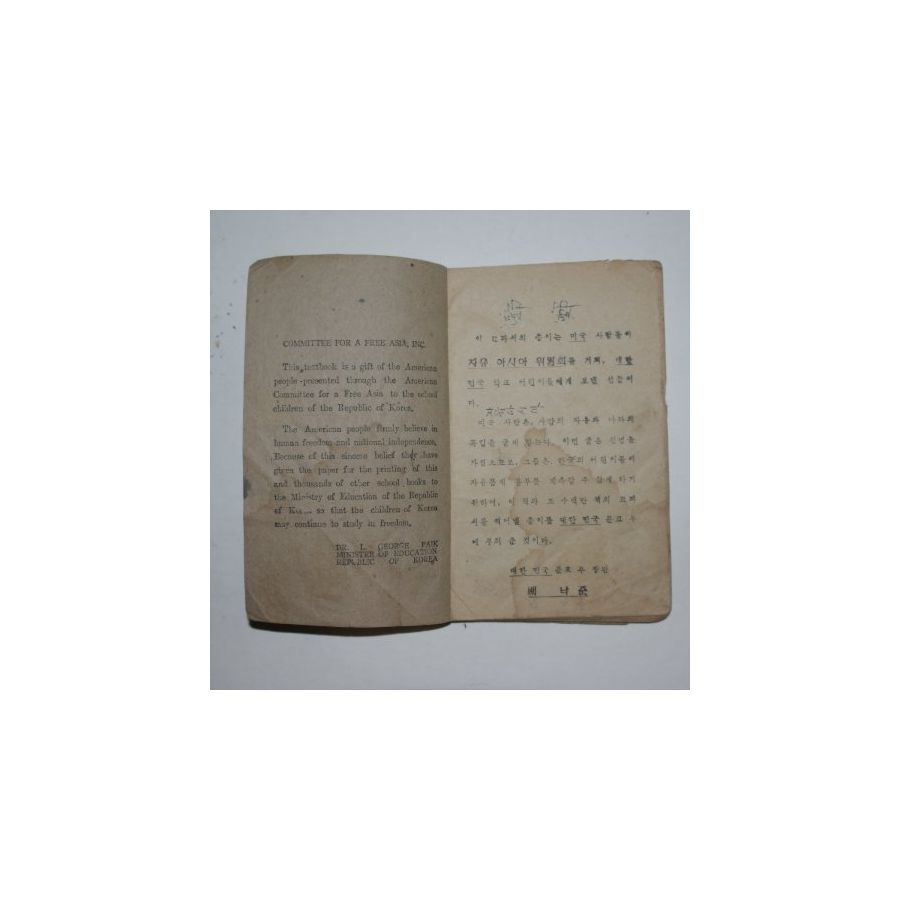 COMMITTEE FOR A FREE ASIA, INC.
This textbook is a gift of the American
people presented through the American
Committee for a Free Asia to the school
children of the Republic of Korea.
The American people firmly believe in
human freedom and national independence.
Because of this sincere belief they have
given the paper for the printing of this
and thousands of other school books to
the Ministry of Education of the Republic
of so that the children of Korea
may continue to study in freedom.
DR. L. GEORGE PAIK
MINISTER OF EDUCATION
REPUBLIC OF KOREA
이 교과서의 종이는 미국 사람들이
자유 아시아 위원회를 거쳐, 대한
민국 학교 어린이들에게 보낸 선물이
다.
미국 사람은, 사람의 자유와 나라의
독립을 굳게 믿는다. 이런 굳은 신념을
가졌으므로, 그들은 한국의 어린이들이
자유롭게 공부를 계속할 수 있게 하기
위하여, 이 책과 또 수백만 책의 교과
서를 박아낼 종이를 대한 민국 문교 부
에 보내 준 것이다.
대한 민국 문교 부 장관